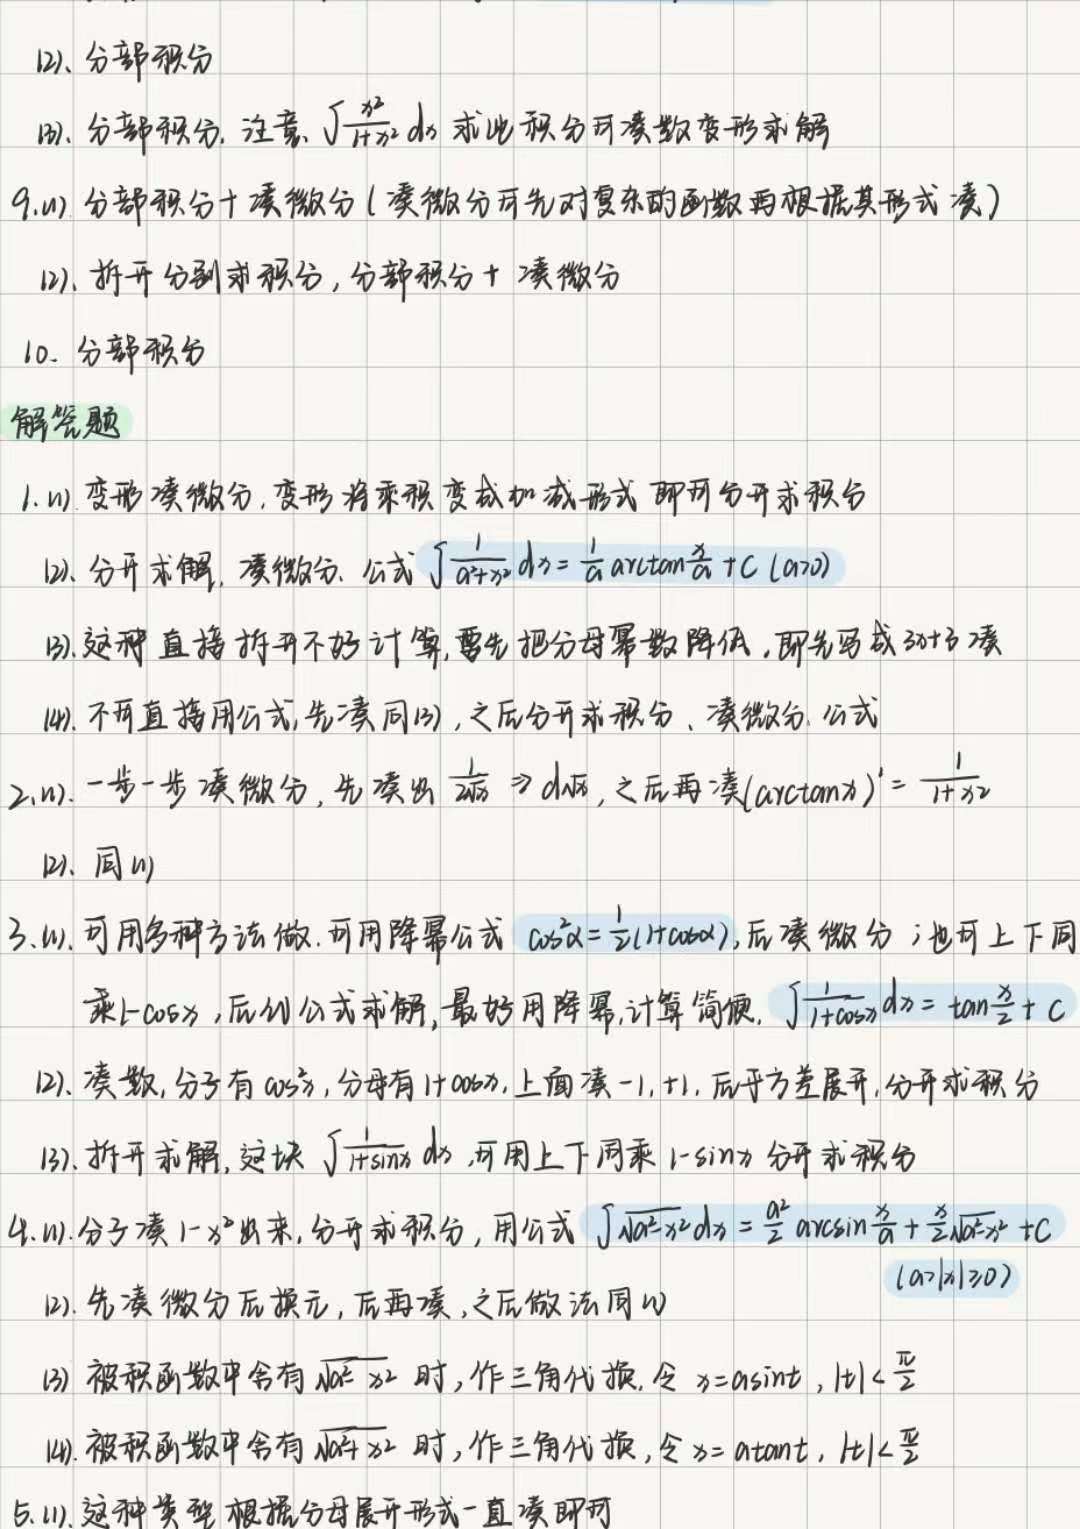 (2)、分部积分
(3)、分部积分，注意、∫x²/(1+x²) dx 求此积分可凑数变形求解
9.(1). 分部积分+凑微分(凑微分可先对复杂的函数再根据其形式凑)
(2)、拆开分别求积分,分部积分+ 凑微分
10. 分部积分
解答题
1.(1). 变形凑微分,变形将乘积变成加减形式 即可分开求积分
(2)、分开求解,凑微分、公式 ∫1/(a²+x²) dx = 1/a arctan x/a + C (a>0)
(3).这种直接拆开不好计算,要先把分母幂数降低,即先写成3x+3凑
(4).不可直接用公式,先凑同(3),之后分开求积分、凑微分、公式
2.(1).一步一步凑微分,先凑出 1/(2√x) ⇒ d√x,之后再凑(arctanx)' = 1/(1+x²)
(2)、同(1)
3.(1).可用多种方法做.可用降幂公式 cos²α=1/2(1+cosα),后凑微分;也可上下同
乘1-cosx,后利公式求解,最好用降幂,计算简便. ∫1/(1+cosx) dx = tan x/2 + C
(2).凑数,分子有cos²x,分母有1+cosx,上面凑-1,+1,后平方差展开,分开求积分
(3).拆开求解,这块∫1/(1+sinx) dx,可用上下同乘 1-sinx 分开求积分
4.(1).分子凑1-x²出来,分开求积分,用公式 ∫√(a²-x²) dx = a²/2 arcsin x/a + x/2 √(a²-x²) + C
(a>|x|≥0)
(2).先凑微分后换元,后再凑,之后做法同(1)
(3) 被积函数中含有√(a² x²) 时,作三角代换,令 x=asint, |t|<π/2
(4).被积函数中含有√(a²+x²) 时,作三角代换,令x=atant, |t|<π/2
5.(1).这种类型根据分母展开形式一直凑即可